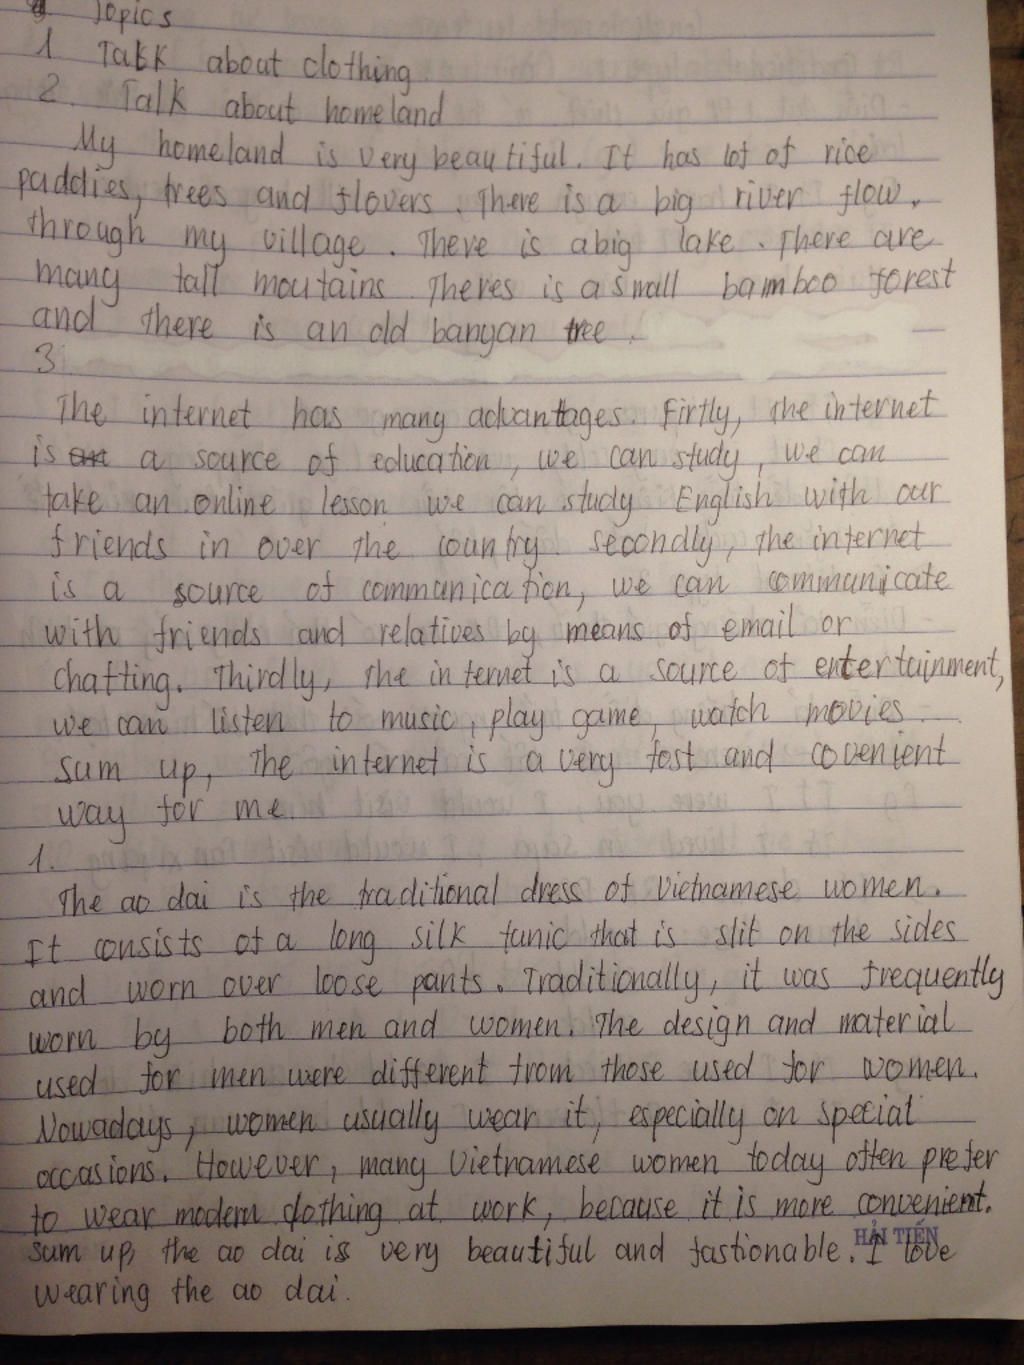 Topics
1 Talk about clothing
2. Talk about homeland
My homeland is very beautiful. It has lot of rice
paddies, trees and flovers. There is a big river flow,
through my village. There is a big lake. There are
many tall moutains Theres is a small bamboo forest
and there is an old banyan tree.
3
The internet has many advantages. Firtly, the internet
is a source of education, we can study, we can
take an online lesson we can study English with our
friends in over the country. Secondly, the internet
is a source of communication, we can communicate
with friends and relatives by means of email or
chatting. Thirdly, the internet is a source of entertainment,
we can listen to music, play game, watch movies.
Sum up, The internet is a very fast and covenient
way for me.
1.
The ao dai is the traditional dress of Vietnamese women.
It consists of a long silk tunic that is slit on the sides
and worn over loose pants. Traditionally, it was frequently
worn by both men and women. The design and material
used for men were different from those used for women.
Nowadays, women usually wear it, especially on special
occasions. However, many Vietnamese women today often prefer
to wear modern clothing at work, because it is more convenient.
Sum up, the ao dai is very beautiful and fastionable. I love
HẢI TIẾN
wearing the ao dai.